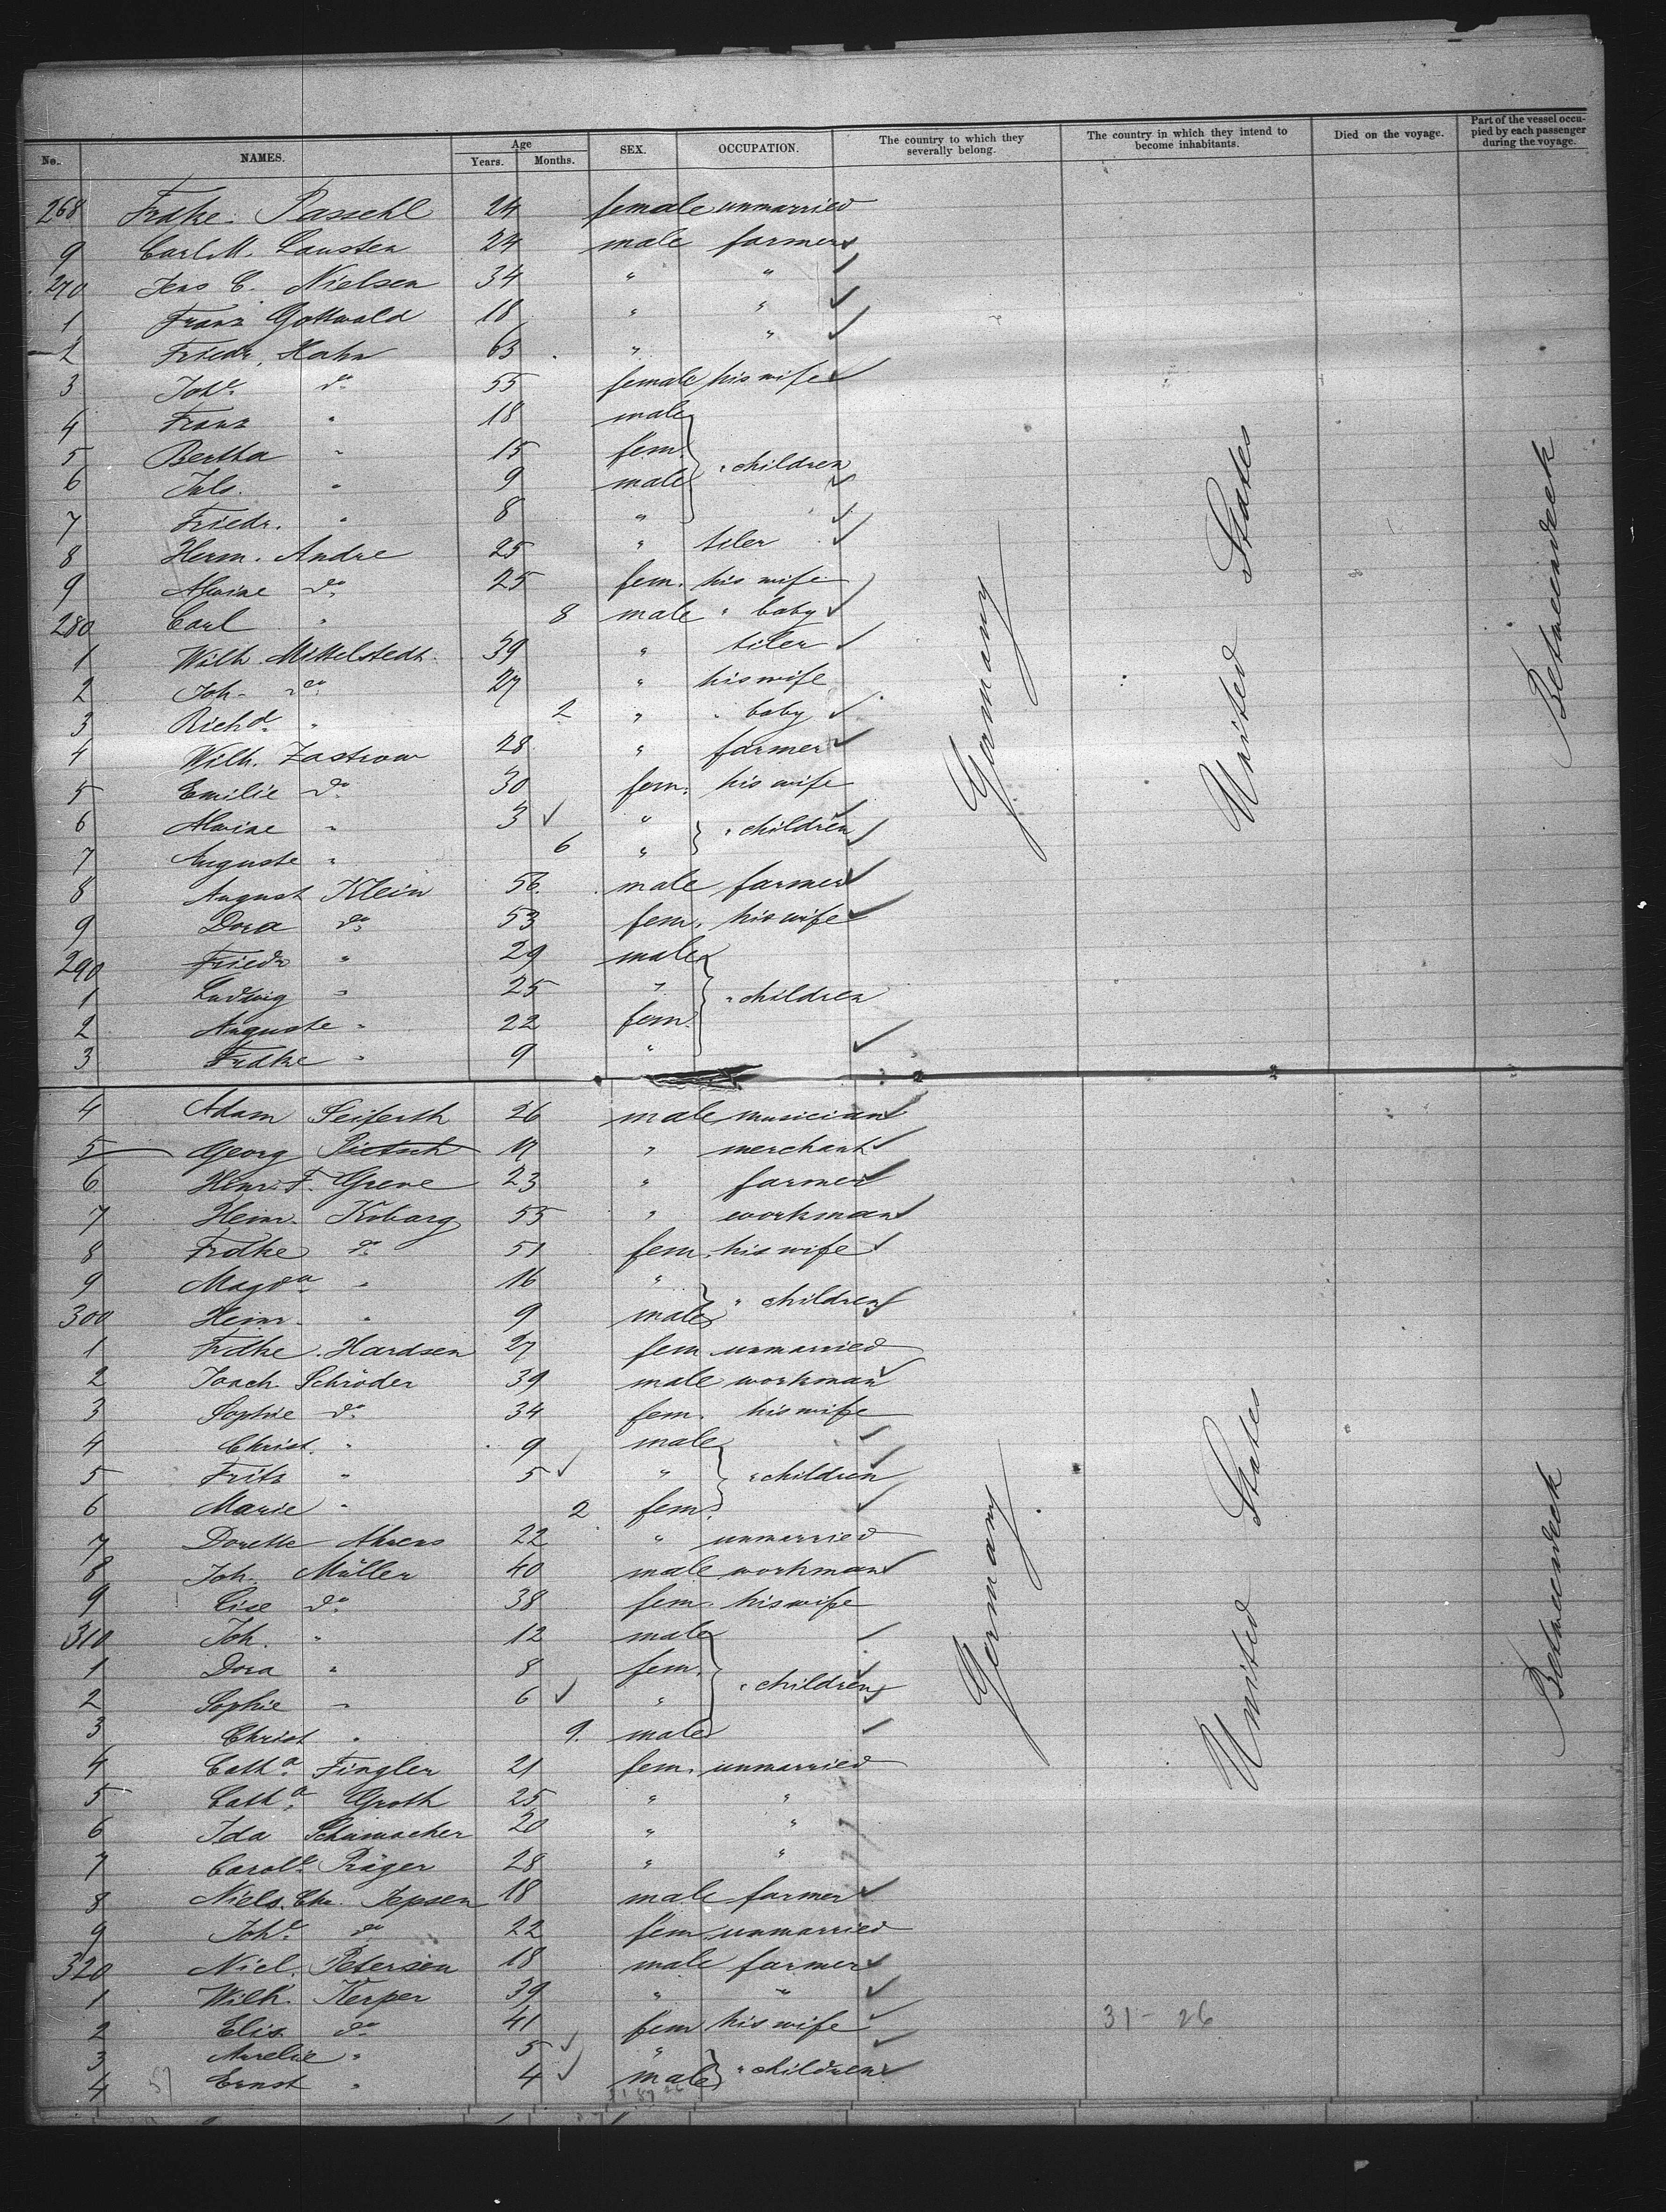 No. NAMES. Age Years. Months. SEX. OCCUPATION. The country to which they severally belong. The country in which they intend to become inhabitants. Died on the voyage. Part of the vessel occupied by each passenger during the voyage.
268 Frdke. Passehl 24 female unmarried
9 Carl M. Lausten 24 male farmer
270 Jens C. Nielsen 34 " "
1 Franz Gottwald 18 " "
2 Friedr. Hahn 63 " "
3 Johe do 55 female his wife
4 Franz " 18 male
5 Bertha " 15 fem. " children
6 Juls. " 9 male
7 Friedr. " 8 "
8 Herm. Andre 25 " tiler
9 Alvine do 25 fem. his wife
280 Carl " 8 male " baby
1 Wilh. Mittelstedt 39 " tiler
2 Joh. do 27 " his wife
3 Richd " 2 " " baby
4 Wilh. Zastrow 28 " farmer
5 Emilie do 30 fem. his wife
6 Alvine " 3 " " children
7 Auguste " 6 "
8 August Klein 56 male farmer
9 Dora do 53 fem. his wife
290 Friedr " 29 male
1 Ludwig " 25 " " children
2 Auguste " 22 fem.
3 Frdke " 9 "
Germany
United States
Betweendeck
4 Adam Seiferth 26 male musician
5 Georg Pietsch 19 " merchant
6 Heinr. F. Greve 23 " farmer
7 Heinr. Kobarg 55 " workman
8 Frdke do 51 fem. his wife
9 Magda " 16 " " children
300 Heinr. " 9 male
1 Frdke. Hardsen 27 fem unmarried
2 Joach. Schröder 39 male workman
3 Sophie do 34 fem. his wife
4 Christ. " 9 male
5 Fritz " 5 " " children
6 Marie " 2 fem.
7 Dorette Ahrens 22 " unmarried
8 Joh. Müller 40 male workman
9 Lise do 38 fem. his wife
310 Joh. " 12 male
1 Dora " 8 fem.
2 Sophie " 6 " " children
3 Christ " 9. male
4 Catha Fingler 21 fem. unmarried
5 Catha Groth 25 " "
6 Ida Schumacher 20 " "
7 Carole Präger 28 " "
8 Niels. Chr. Jepsen 18 male farmer
9 Johe do 22 fem unmarried
320 Niel. Petersen 18 male farmer
1 Wilh. Kerper 39 " "
2 Elis. do 41 fem his wife
3 Aurelie " 5 " " children
4 Ernst " 4 male
Germany
United States
Betweendeck
31-26
57